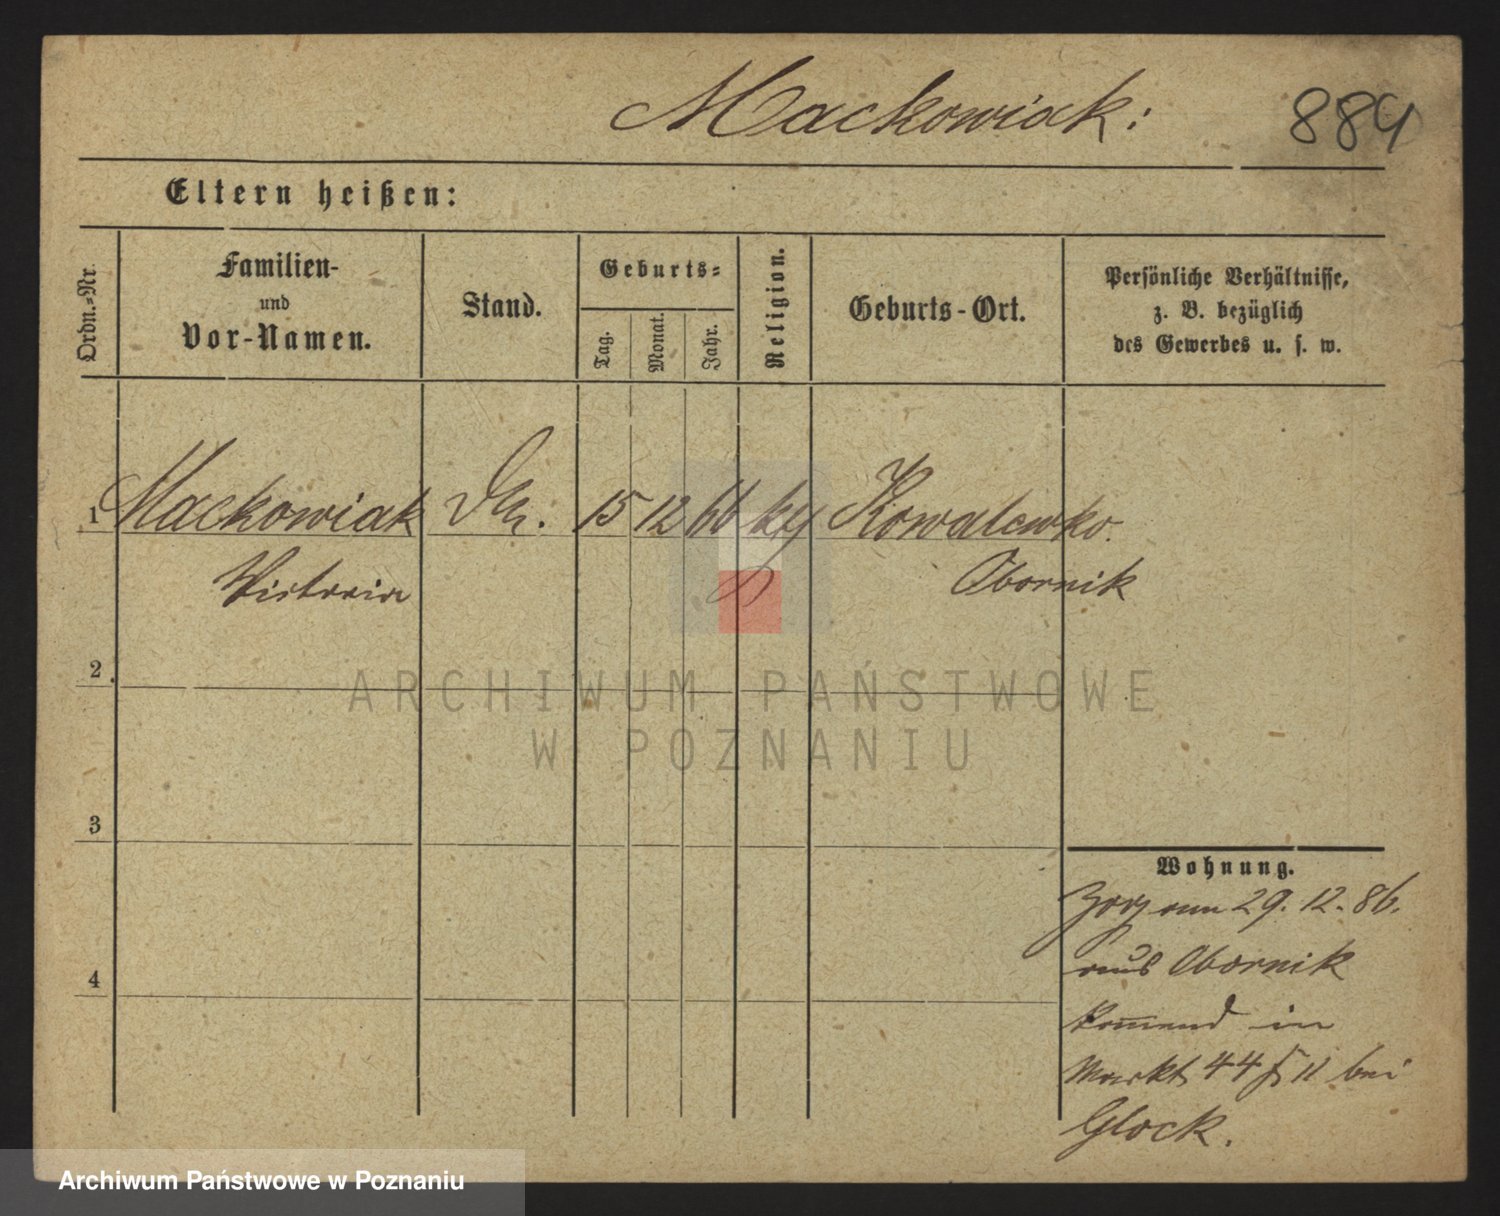 Mackowiak:
884
Eltern heißen:
Ordn.-Nr.
Familien-
und
Vor-Namen.
Stand.
Geburts-
Tag.
Monat.
Jahr.
Religion.
Geburts-Ort.
Persönliche Verhältnisse,
z. B. bezüglich
des Gewerbes u. s. w.
1 Mackowiak 15 12 66 Kowalewko.
Victoria Obornik
2
3
4
Wohnung.
Zog am 29. 12. 86.
aus Obornik
komend in
Markt 44 11 bei
Glock.
ARCHIWUM PAŃSTWOWE
W POZNANIU
Archiwum Państwowe w Poznaniu